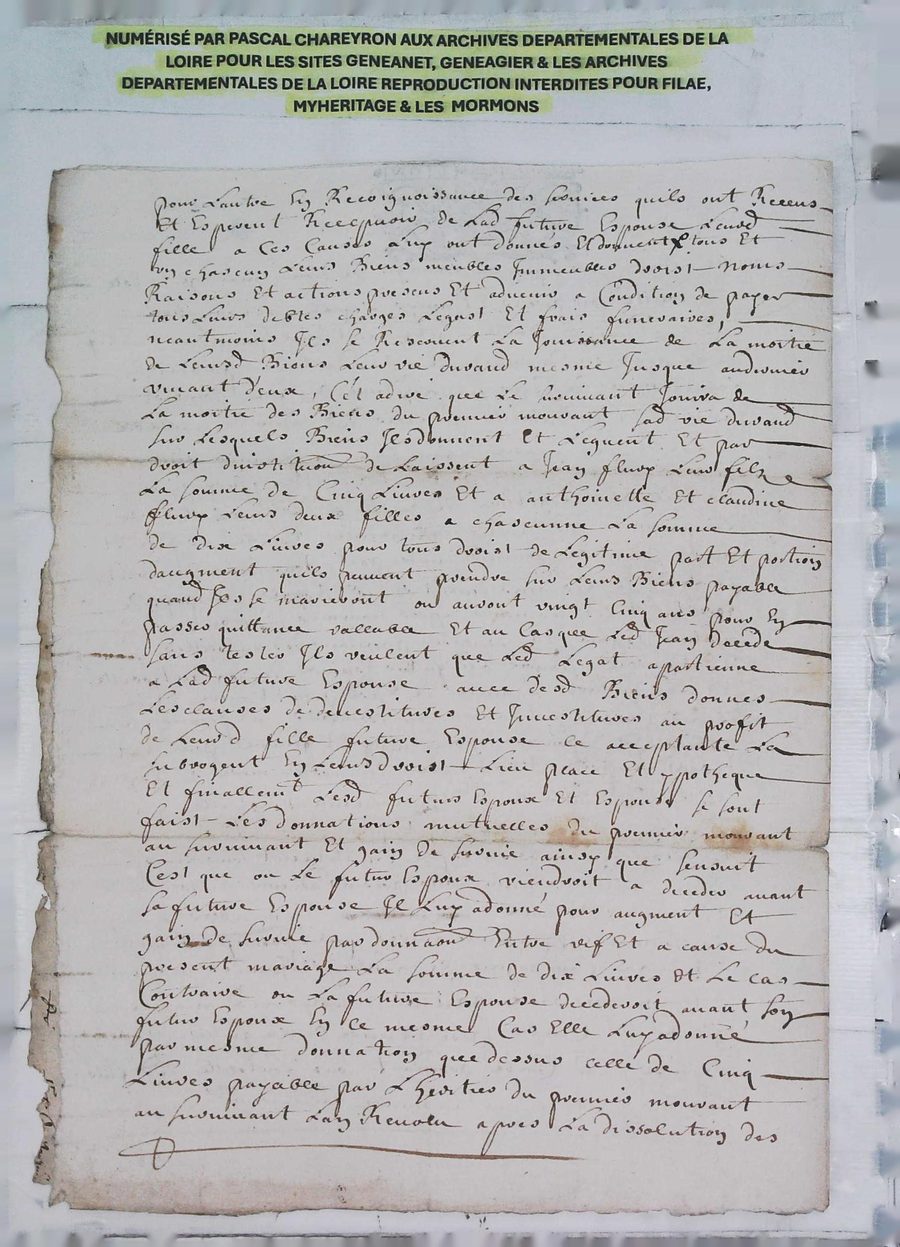 NUMÉRISÉ PAR PASCAL CHAREYRON AUX ARCHIVES DEPARTEMENTALES DE LA
LOIRE POUR LES SITES GENEANET, GENEAGIER & LES ARCHIVES
DEPARTEMENTALES DE LA LOIRE REPRODUCTION INTERDITES POUR FILAE,
MYHERITAGE & LES MORMONS
pour Lautre En Recoignoissance des services quils ont Receus
Et Esperent Recepvoir de Lad future Espouse Leurd
fille a Ces Causes Luy ont donnés Et donnent tous Et
un chascun Leurs Biens meubles Immeubles droist noms
Raisons Et actions presens Et advenir a Condition de payer
tous Leurs debtes charges Legast Et frais funeraires,
neantmoins Ils se Reservent La Jouissance de La moitié
de Leursd Biens Leur vie durand mesme Jusque audernier
vivant deux, C'est adire que Le survivant Jouira de
La moitié des Biens du premier mourant sad vie durand
sur Lesquels Biens Ils donnent Et Leguent Et par
droit dinstitution delaissent a Jean fleury Leur fils
La somme de Cinq Livres Et a anthoinette Et claudine
fleury Leurs deux filles a chascunne La somme
de dix Livres pour tous droist de Legitime part Et portion
daugment quils peuvent prendre sur Leurs Biens payable
quand Ils se marieront ou auront vingt Cinq ans pour En
passer quittance vallable Et au Cas que Led Jean decede
sans tester Ils veulent que Led Legat apartienne
a Lad future Espouse avec desd Biens donnés
Les clauses de devestitures Et Investitures au profit
de Leurd fille future Espouse ce acceptante La
subrogent En Leurs droist Lieu place Et ypotheque
Et finallemt Lesd futurs Espoux Et Espouse se sont
faist Les donnations mutuelles du premier mourant
au survivant Et gain de survie ainsy que sensuit
C'est que ou Le futur Espoux viendroit a deceder avant
sa future Espouse Il Luy a donné pour augment Et
gain de survie par donnaon Entre vif Et a cause du
present mariage La somme de dix Livres Et Le cas
Contraire ou La future Espouse decederoit avant son
futur Espoux En Ce mesme Cas Elle Luy a donné
par mesme donnation que dessus celle de Cinq
Livres payable par Lheritier du premier mourant
au survivant Lan Revolu apres La dissolution des